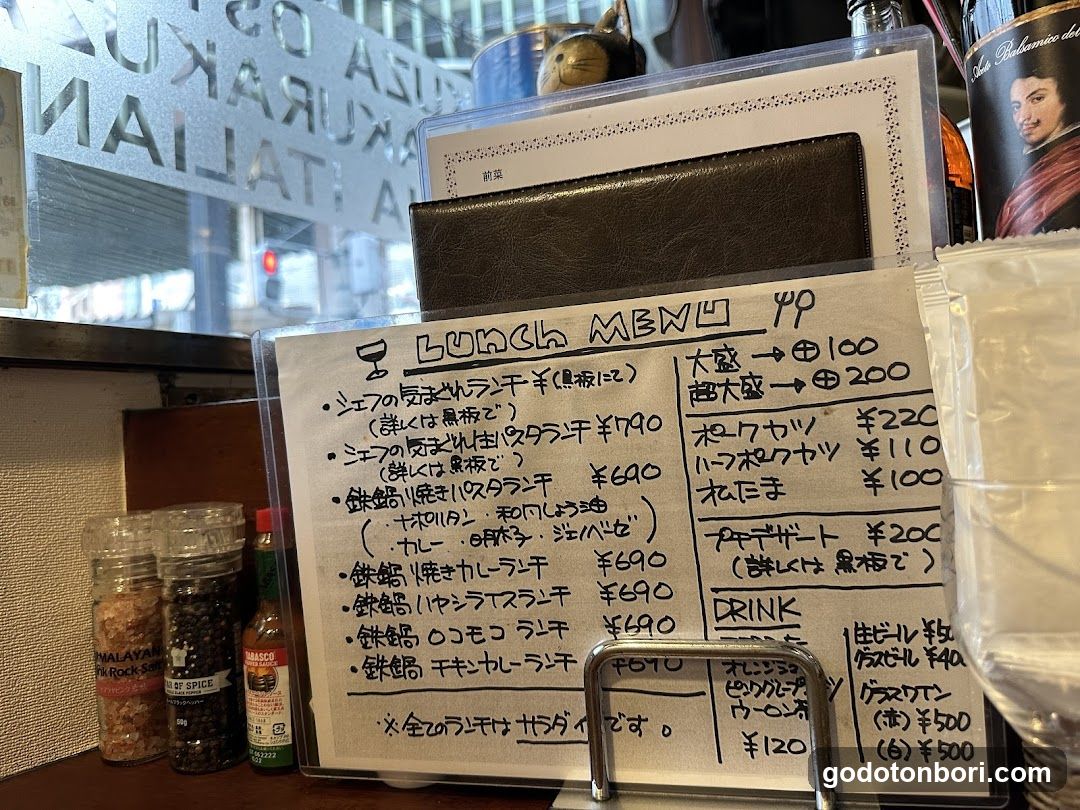 前菜
Aceto Balsamico del
LUNCH MENU
・シェフの気まぐれランチ ¥(黒板にて)
(詳しくは黒板で)
・シェフの気まぐれ生パスタランチ ¥790
(詳しくは黒板で)
・鉄鍋焼きパスタランチ ¥690
(・ナポリタン ・和風しょう油
・カレー ・明太子 ・ジェノベーゼ)
・鉄鍋焼きカレーランチ ¥690
・鉄鍋ハヤシライスランチ ¥690
・鉄鍋ロコモコランチ ¥690
・鉄鍋チキンカレーランチ ¥690
※全てのランチはサラダ です。
大盛→⊕100
超大盛→⊕200
ポークカツ ¥220
ハーフポークカツ ¥110
温たま ¥100
プチデザート ¥200
(詳しくは黒板で)
DRINK
オレンジ
ピンクグレープ
ウーロン茶
¥120
生ビール
グラスビール
グラスワイン
(赤) ¥500
(白) ¥500
TABASCO
PEPPER SAUCE
OF SPICE
50g
godotonbori.com